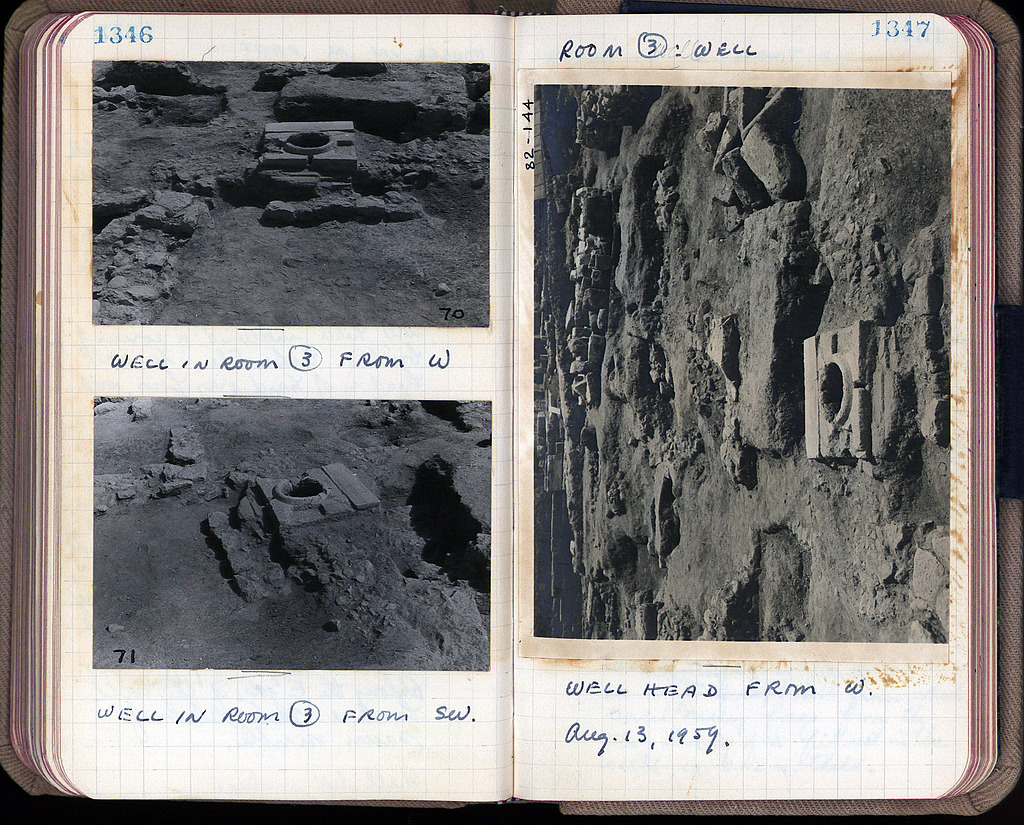 1346
70
WELL IN ROOM 3 FROM W
71
WELL IN ROOM 3 FROM SW.
1347
ROOM 3: WELL
82-144
WELL HEAD FROM W.
Aug. 13, 1959.